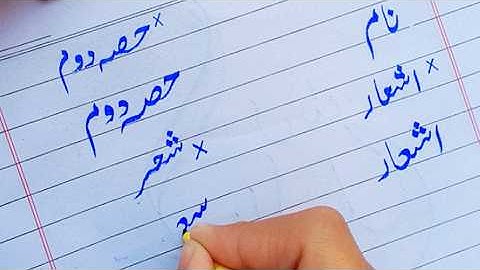 نام
اشعار ×
اشعار
حصہ دوم ×
حصہ دوم
شعر ×